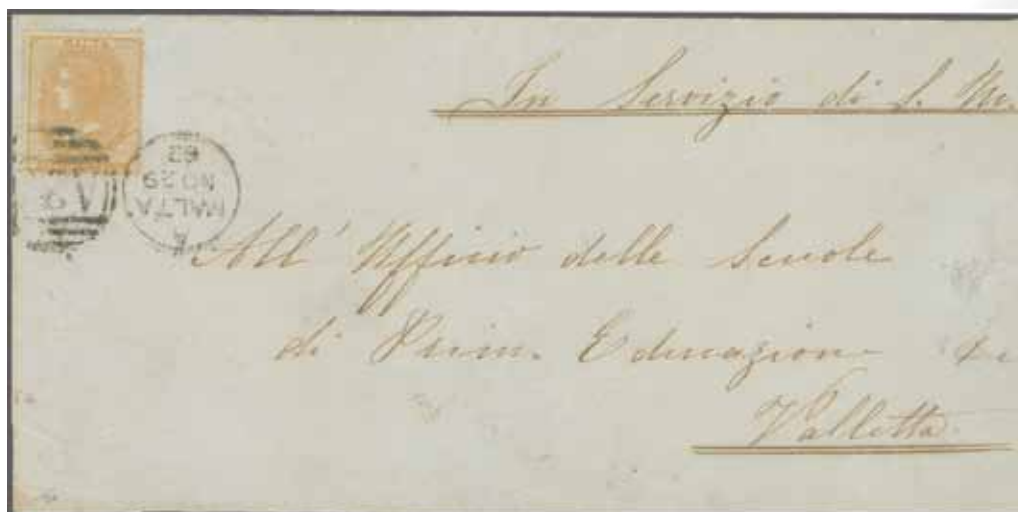 In Servizio di S. M.
MALTA
NO 29
82
A 25
All' Ufficio delle Scuole
di Prim. Educazione
Valletta